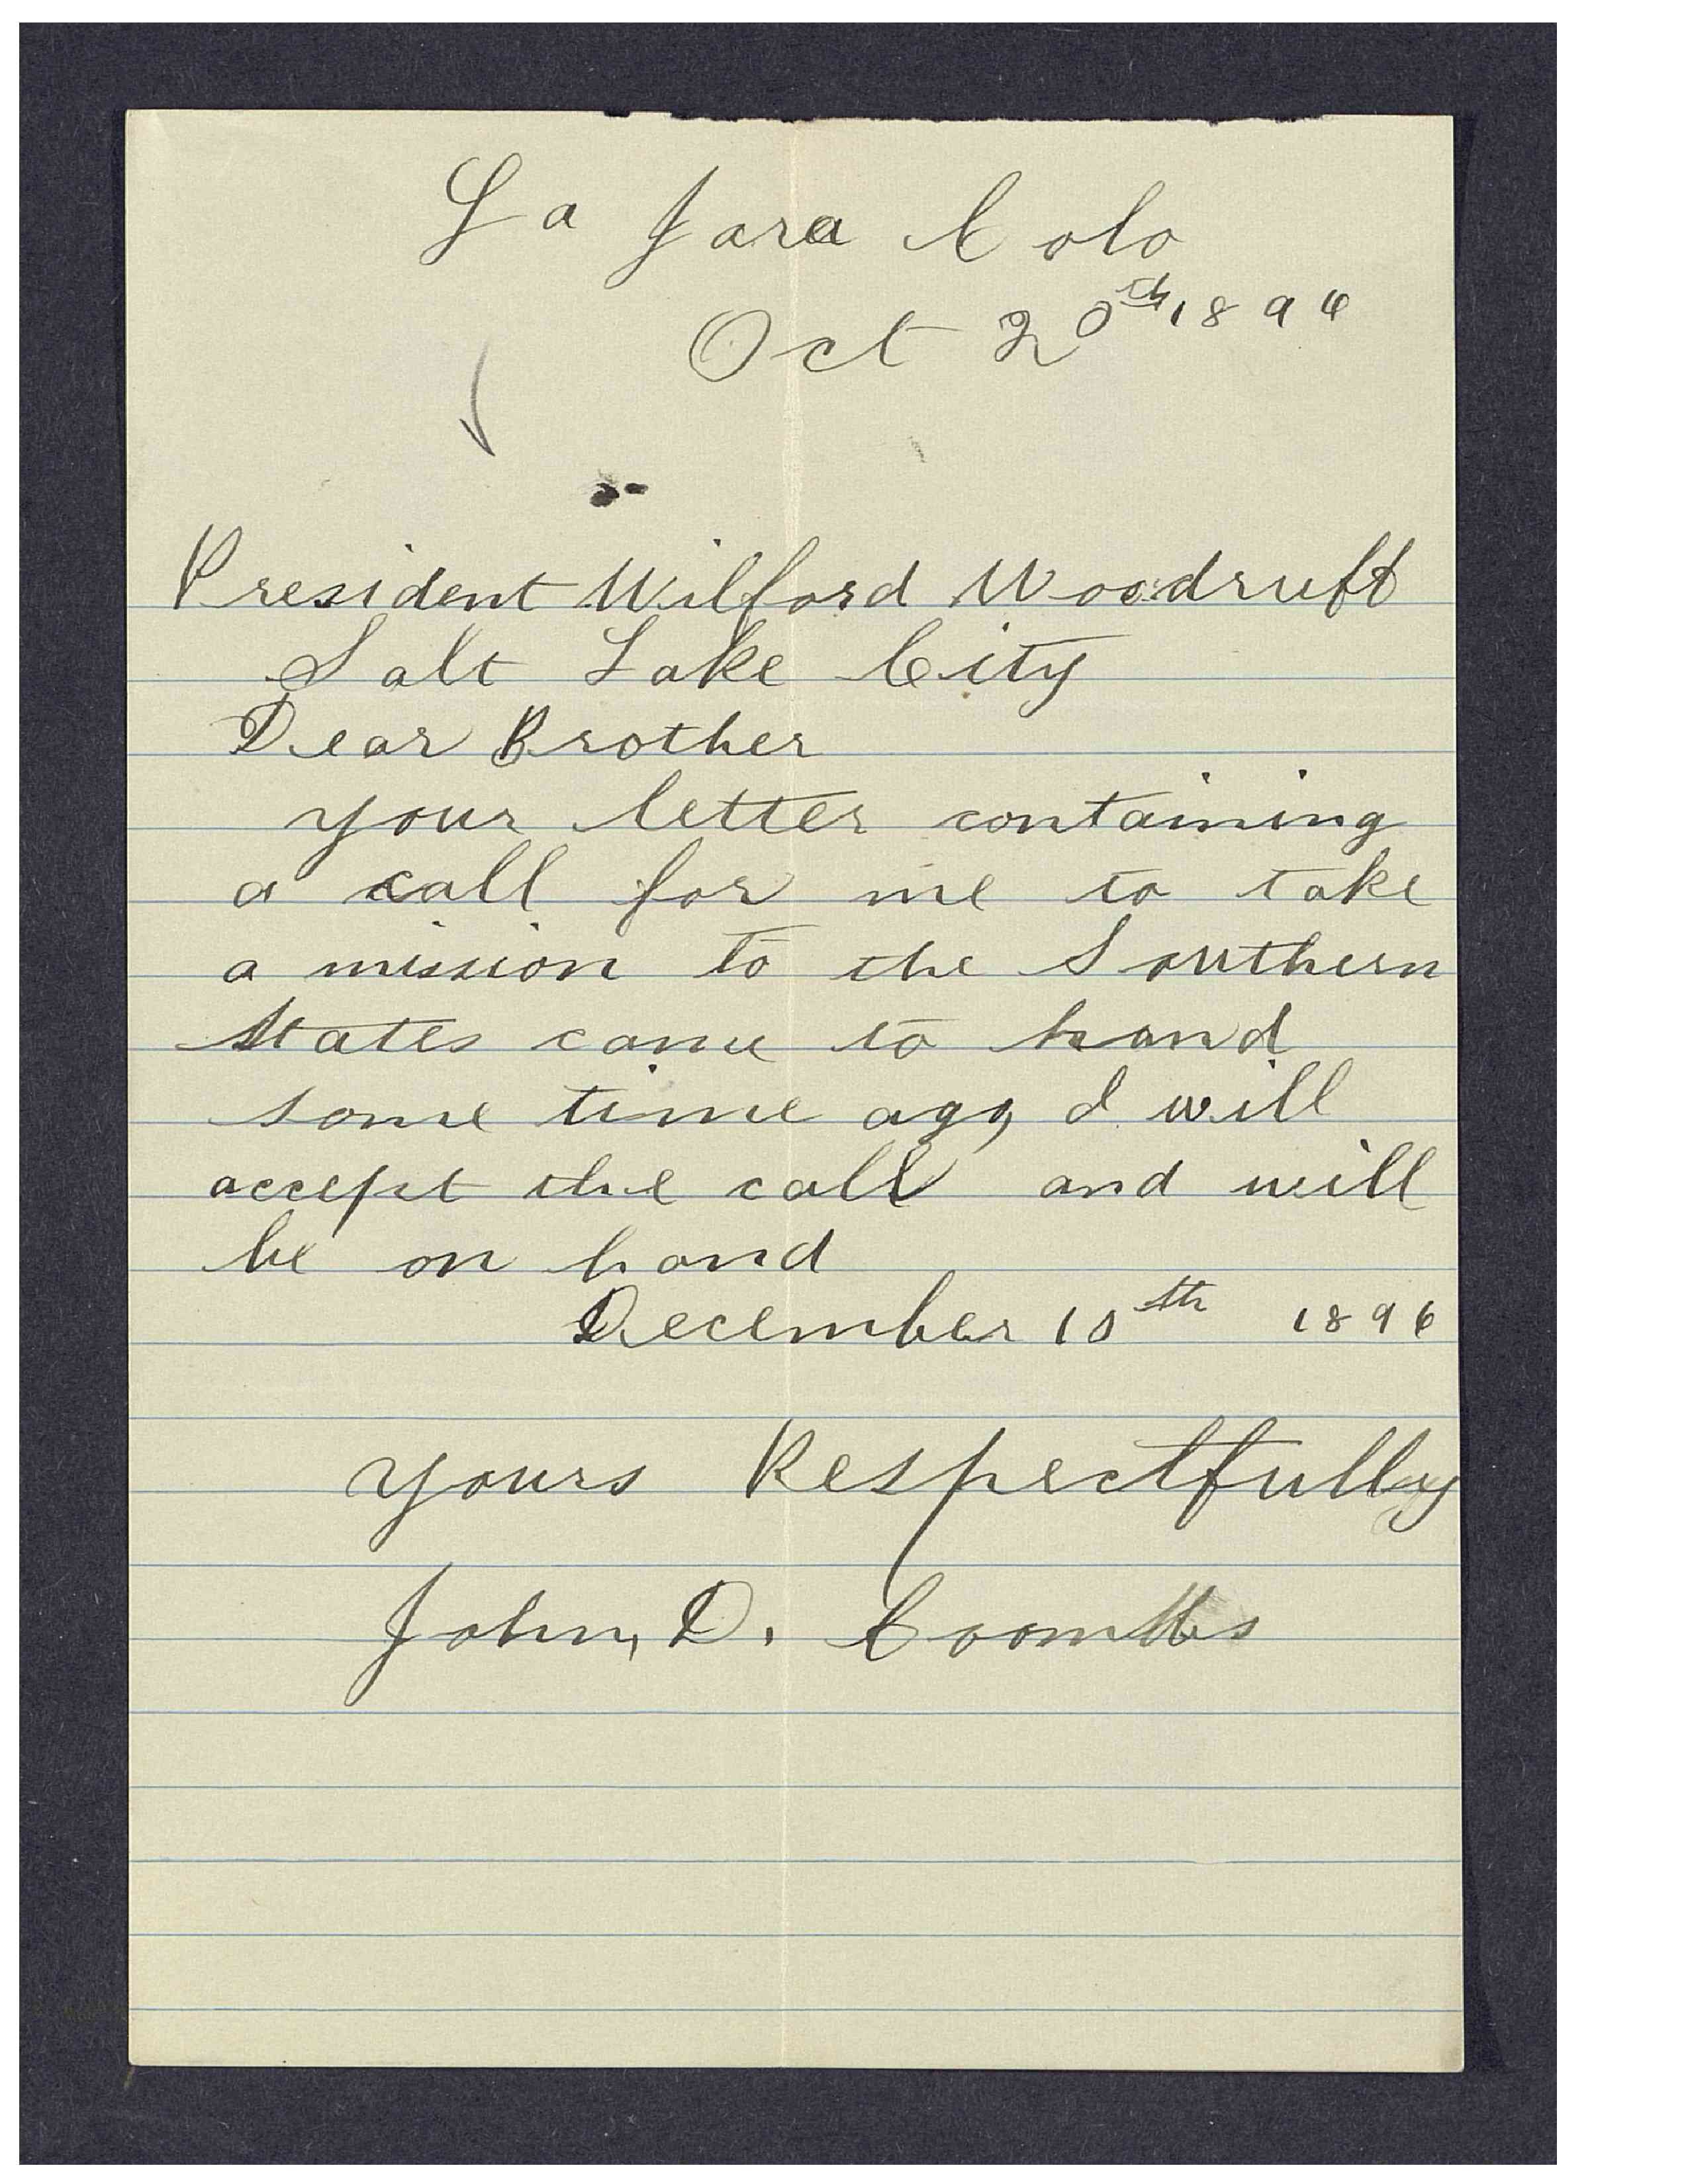 La Jara Colo
Oct 20th 1896
President Wilford Woodruff
Salt Lake City
Dear Brother
your letter containing
a call for me to take
a mission to the Southern
States came to hand
some time ago, I will
accept the call and will
be on hand
December 10th 1896
yours Respectfully
John, D. Coombs